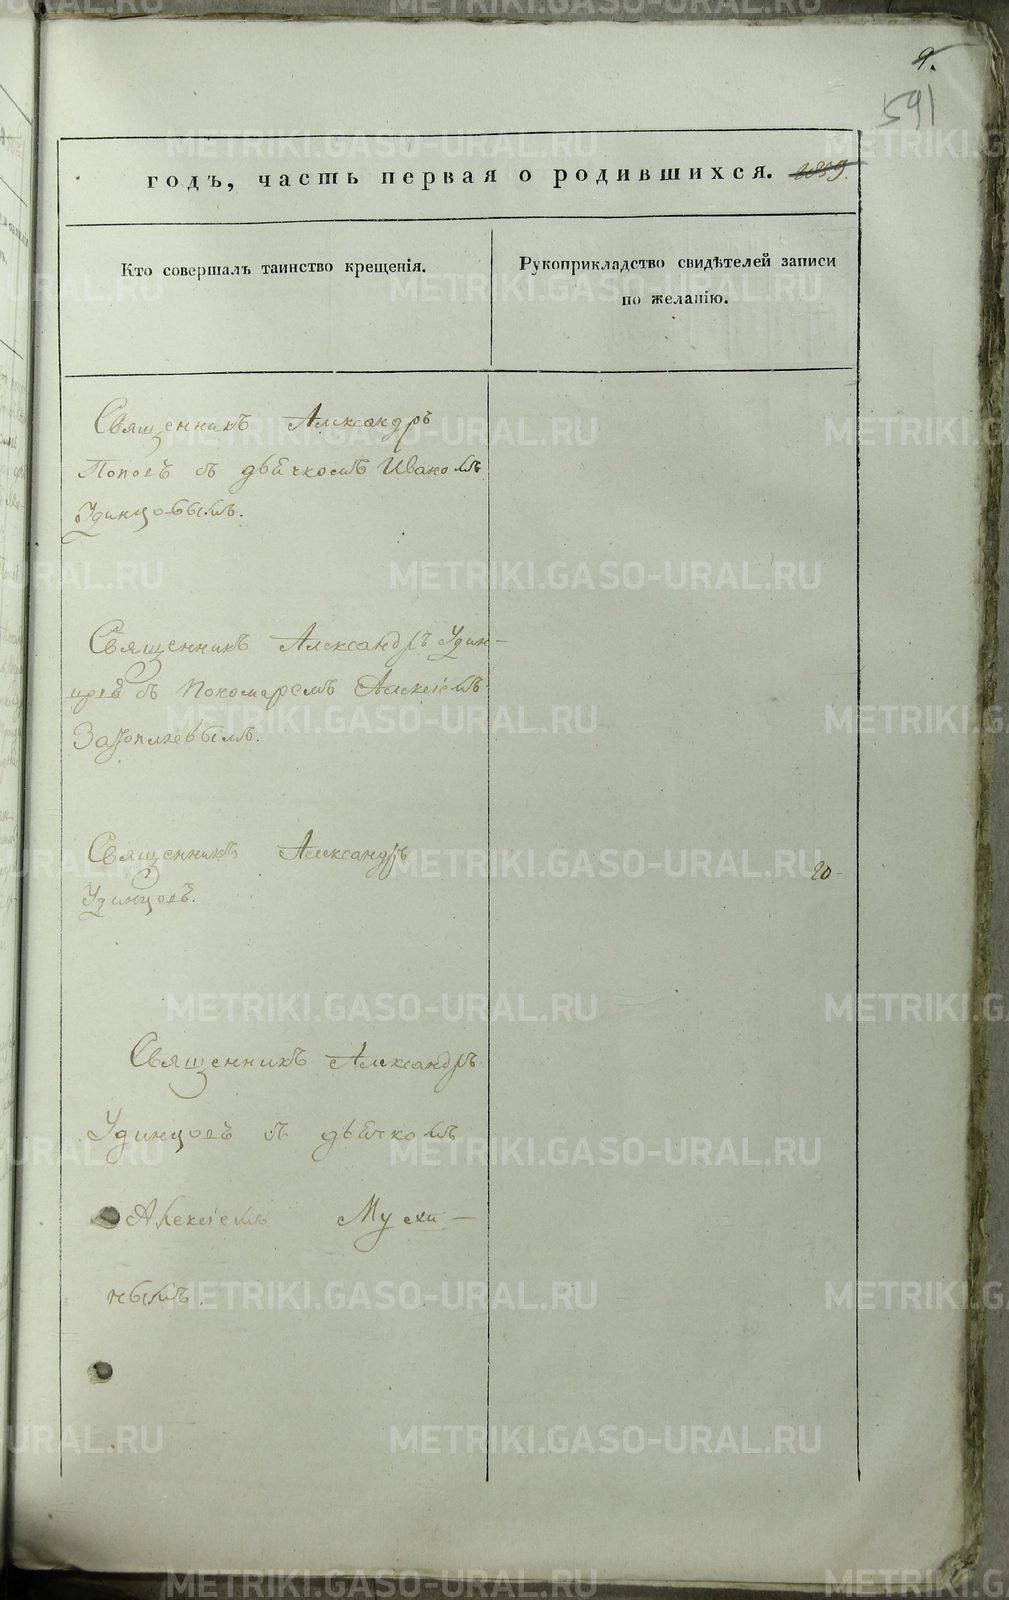 9.
591
годъ, часть первая о родившихся. 1839.
Кто совершалъ таинство крещенія.
Рукоприкладство свидѣтелей записи
по желанію.
Священникъ Александръ
Поповъ съ дьячкомъ Иваномъ
Удинцовымъ.
Священникъ Александръ Удин-
цовъ съ Пономаремъ Алексіемъ
Затопляевымъ.
Священникъ Александръ
Удинцовъ.
20
Священникъ Александръ
Удинцовъ съ дьячкомъ
Алексіемъ Мухи-
нымъ.
METRIKI.GASO-URAL.RU